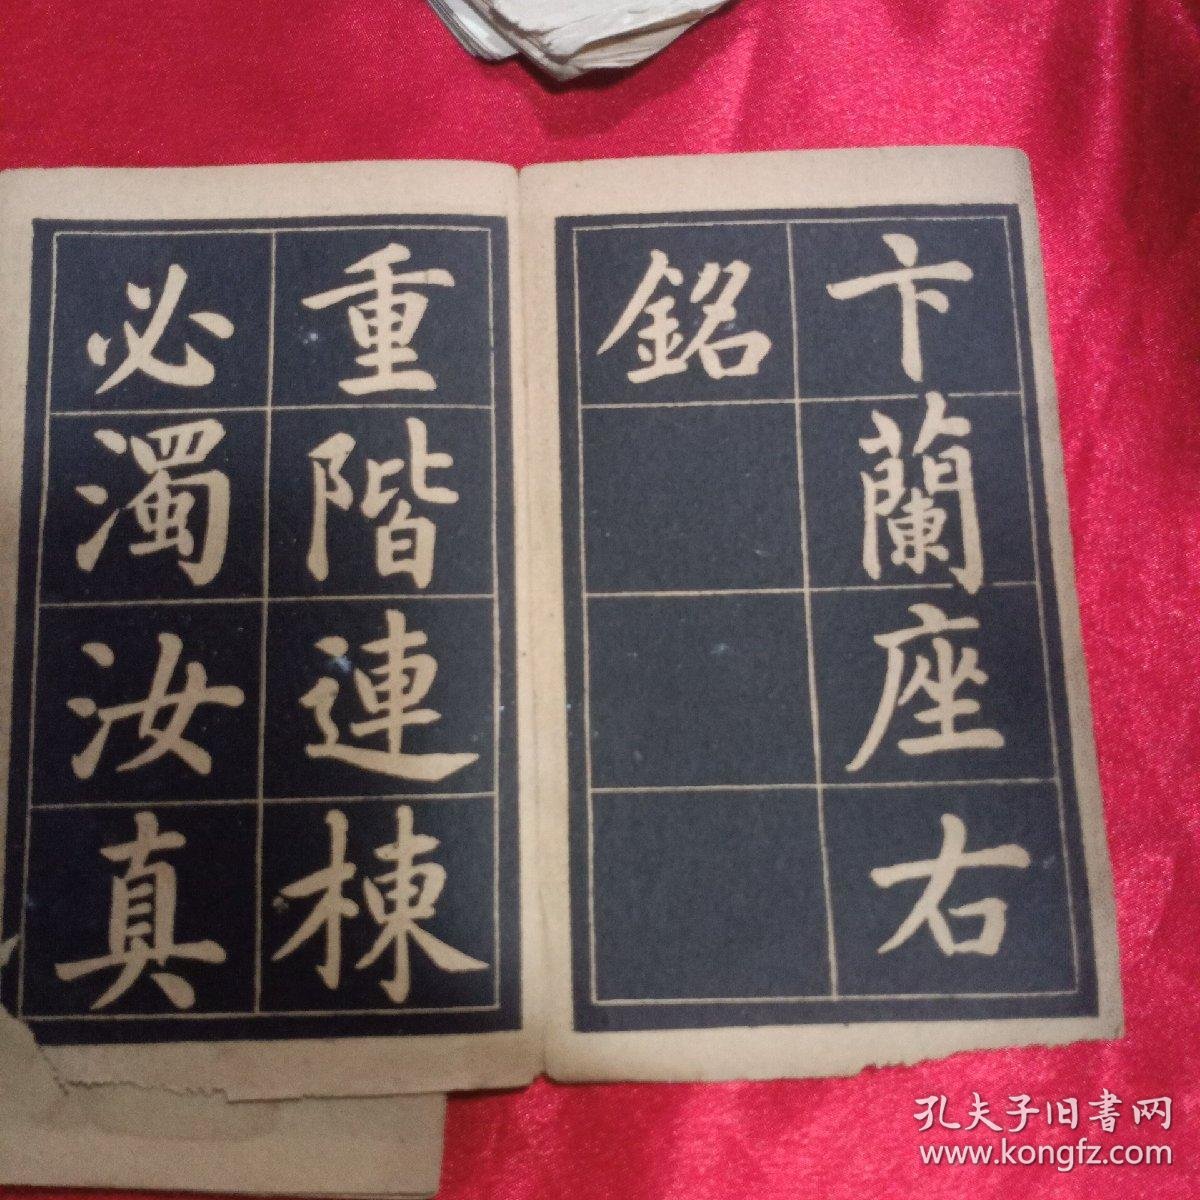 卞蘭座右
銘
重階連棟
必濁汝真
孔夫子旧書网
www.kongfz.com